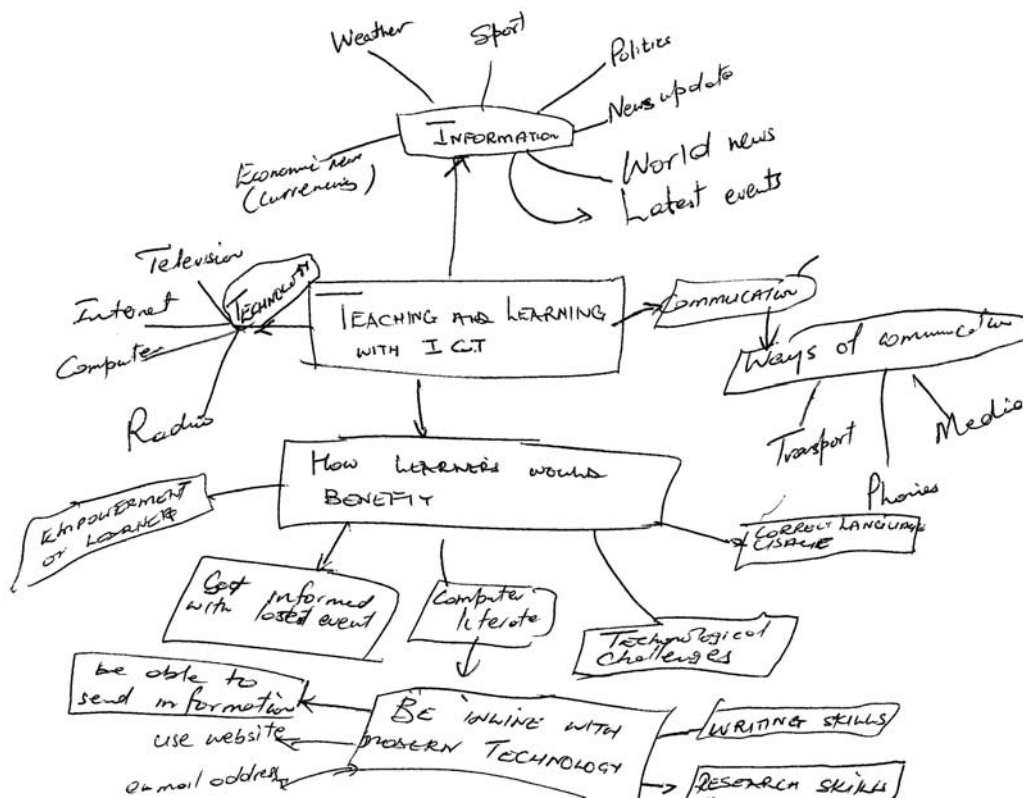 Weather
Sport
Politics
News update
INFORMATION
World news
Latest events
Economic news
(Currencies)
Television
TECHNOLOGY
Internet
Computer
Radio
TEACHING AND LEARNING
WITH ICT
COMMUCATION
Ways of communication
Transport
Media
Phones
HOW LEARNERS WOULD
BENEFIY
EMPOWERMENT
OF LEARNER
CORRECT LANGUAGE
USAGE
Get informed
with event
Computer
literate
TECHNOLOGICAL
challenges
be able to
send information
use website
BE INLINE WITH
MODERN TECHNOLOGY
WRITING SKILLS
RESEARCH SKILLS